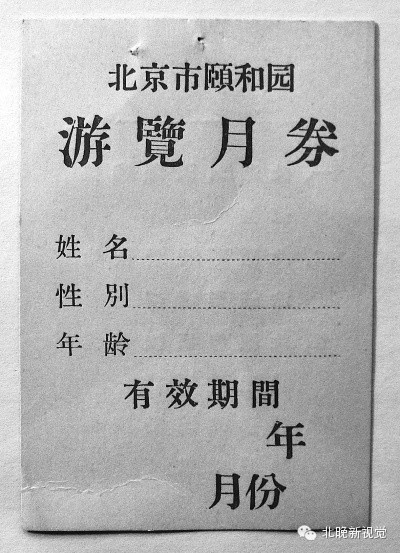 北京市頤和园
游覽月券
姓名
性别
年龄
有效期間
年
月份
北晚新视觉